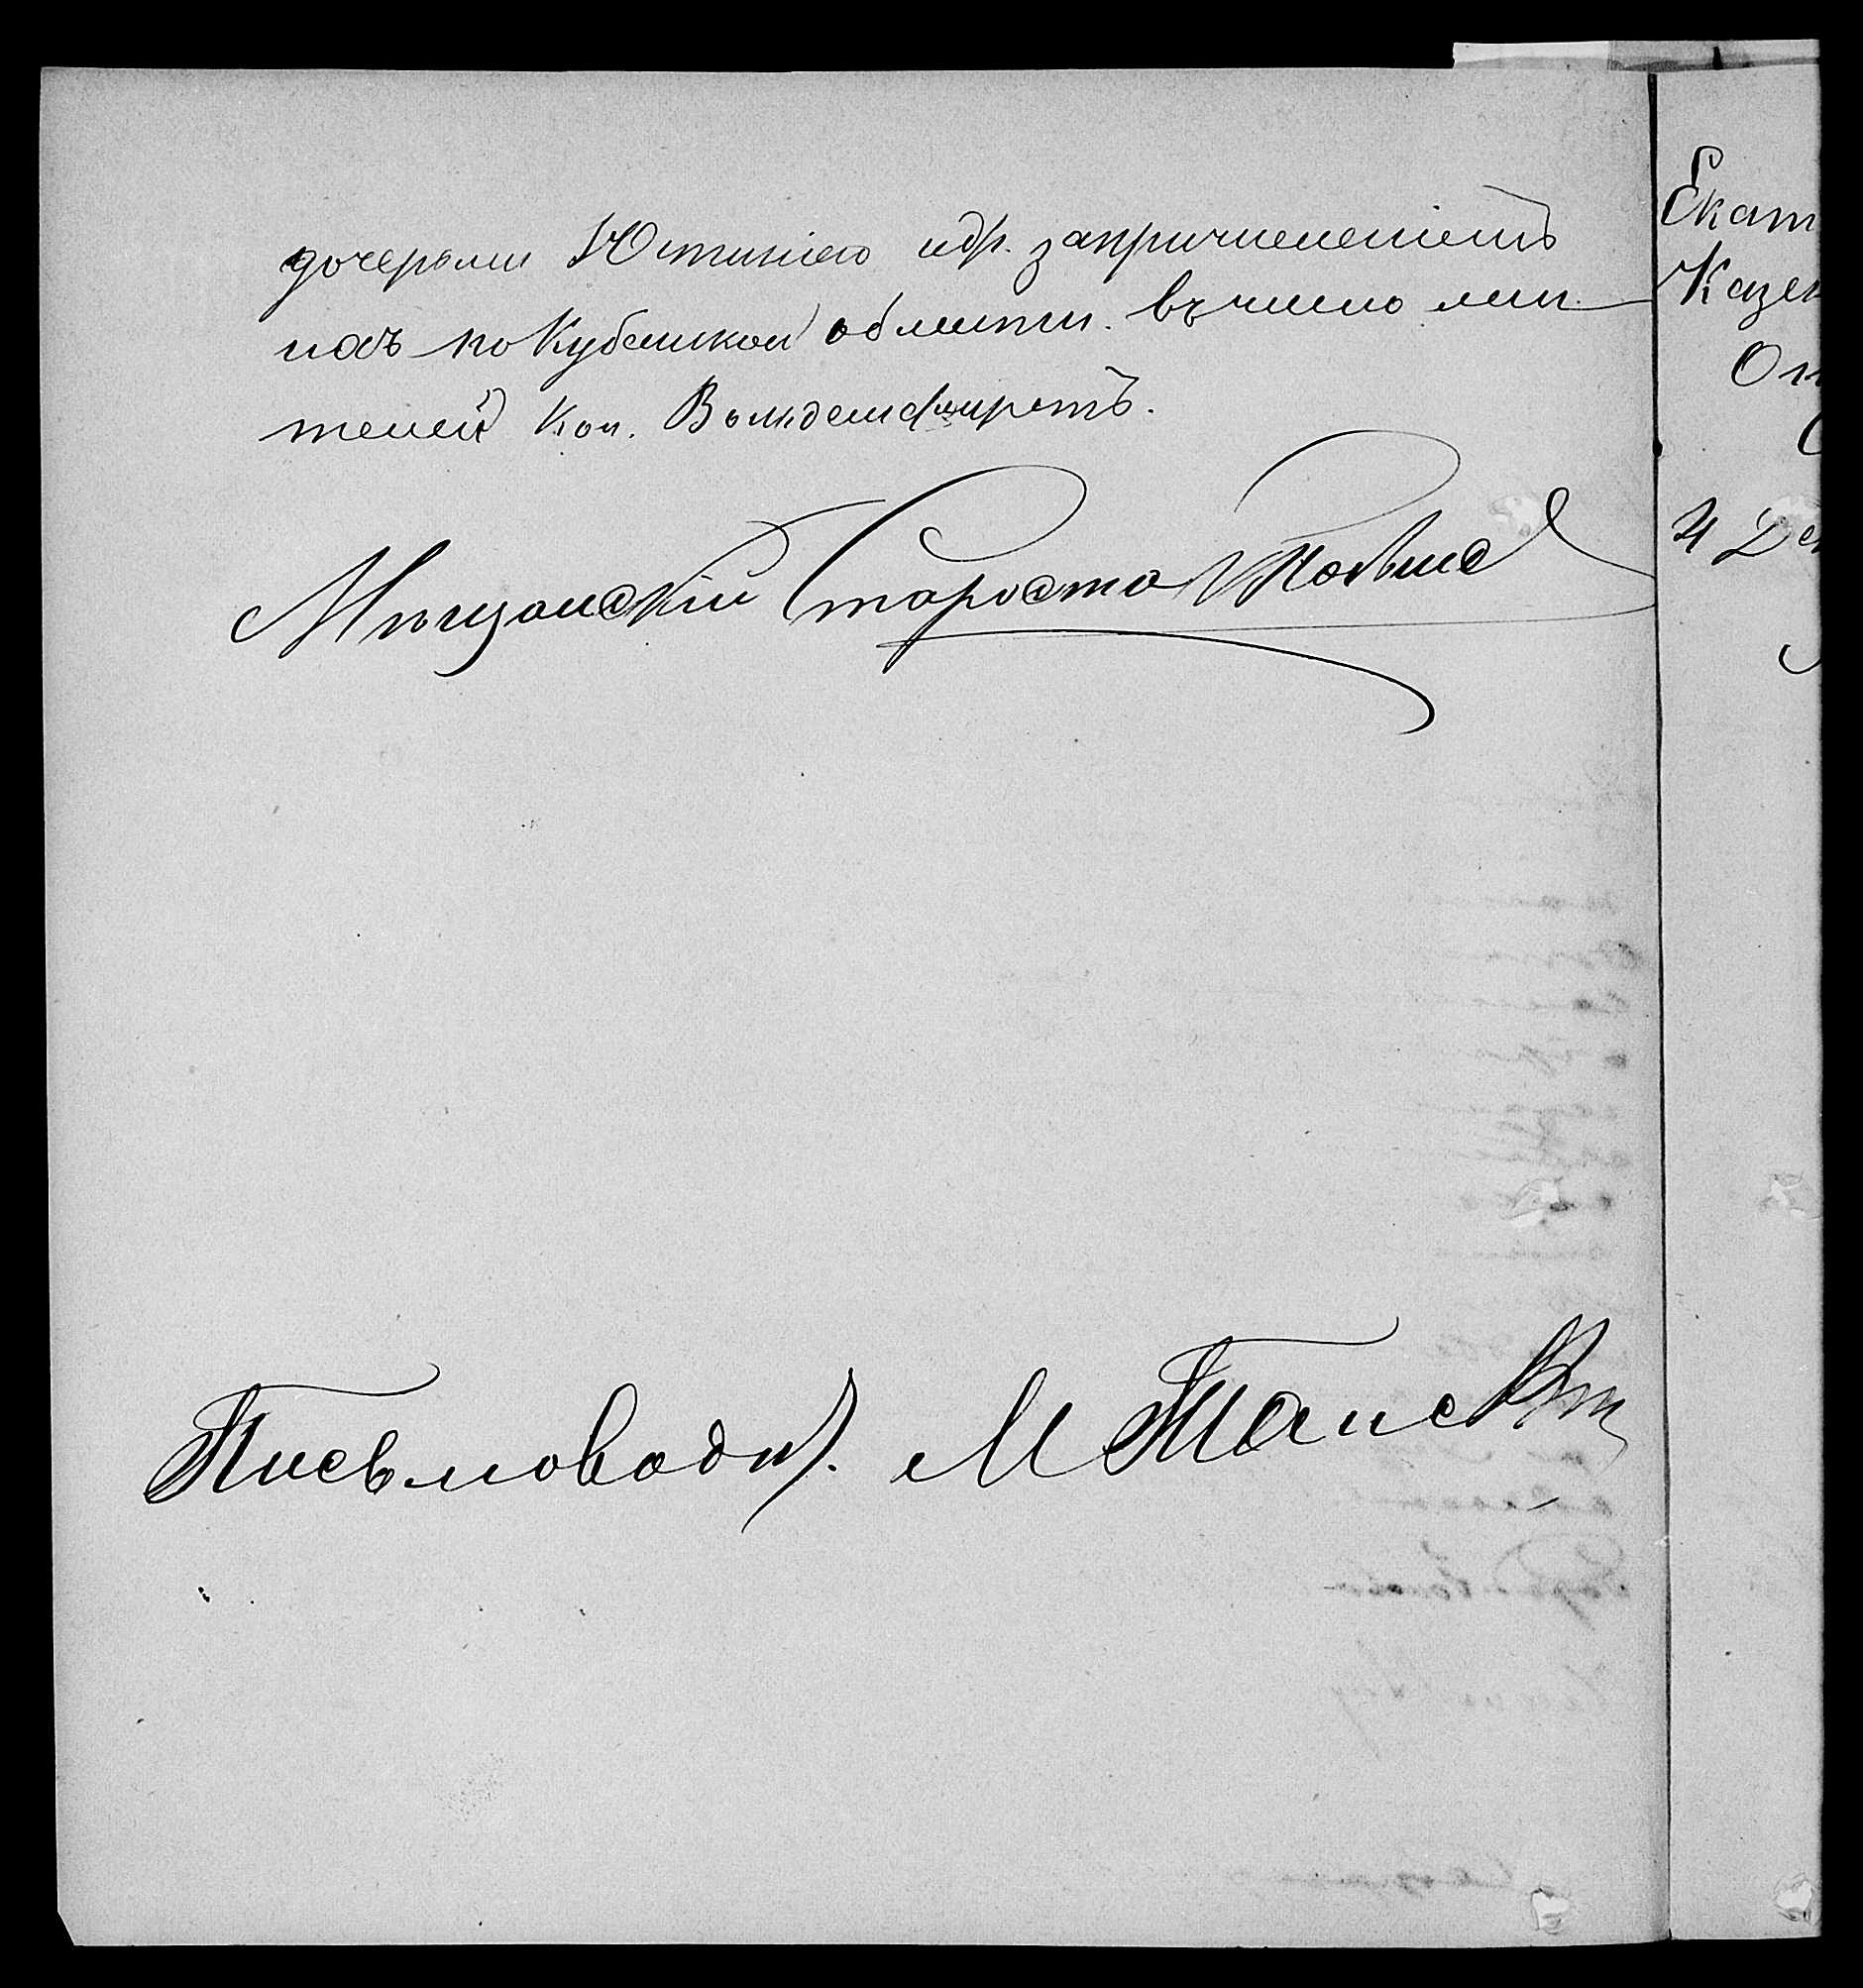 дочерьми Юстиніею и др. за причисленіемъ
ихъ по Кубанской области въ число жи
телей кол. Вольдемфирстъ.
Мѣщанскій Староста
Письмовод. М
Екат
Казен
От
4 Де